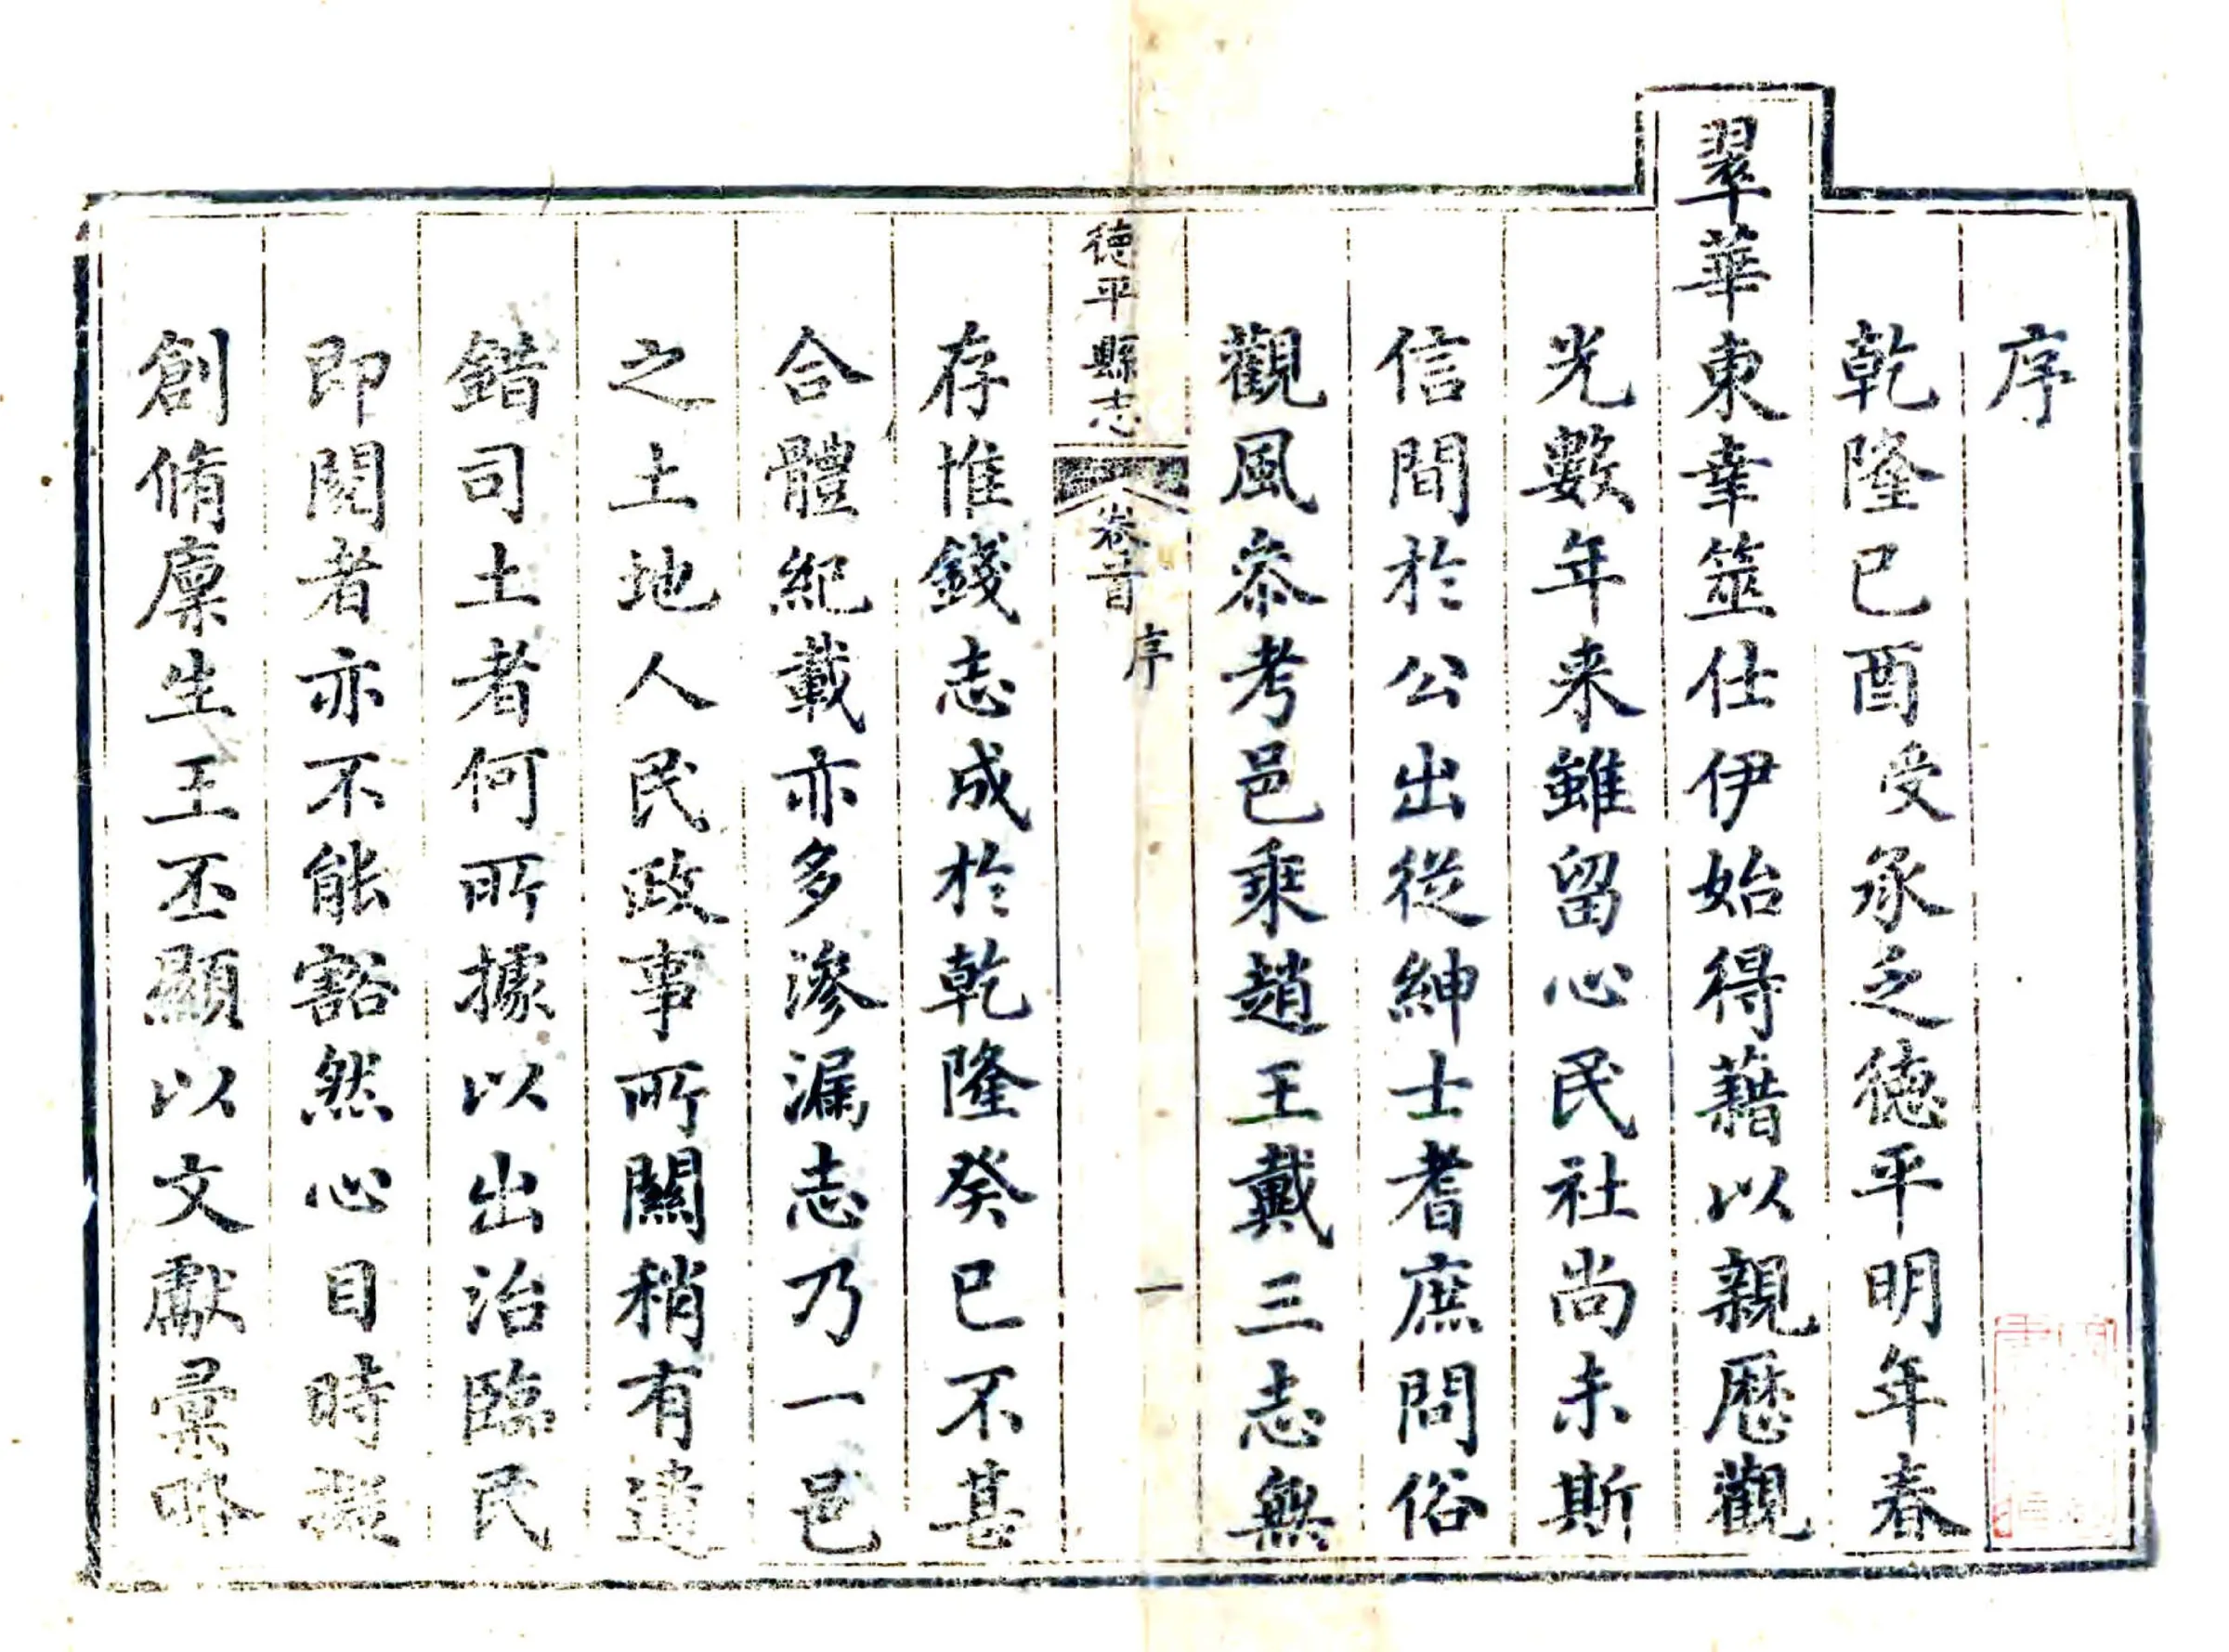 序
乾隆己酉受承之德平明年春
翠華東幸筮仕伊始得藉以親歷觀
光數年来雖留心民社尚未斯
信間於公出從紳士耆庶問俗
觀風叅考邑乘趙王戴三志無
德平縣志 卷首 序 一
存惟錢志成於乾隆癸巳不甚
合體紀載亦多滲漏志乃一邑
之土地人民政事所關稍有遺
錯司土者何所據以出治臨民
即閱者亦不能豁然心目時擬
創脩廩生王丕顯以文獻彙略